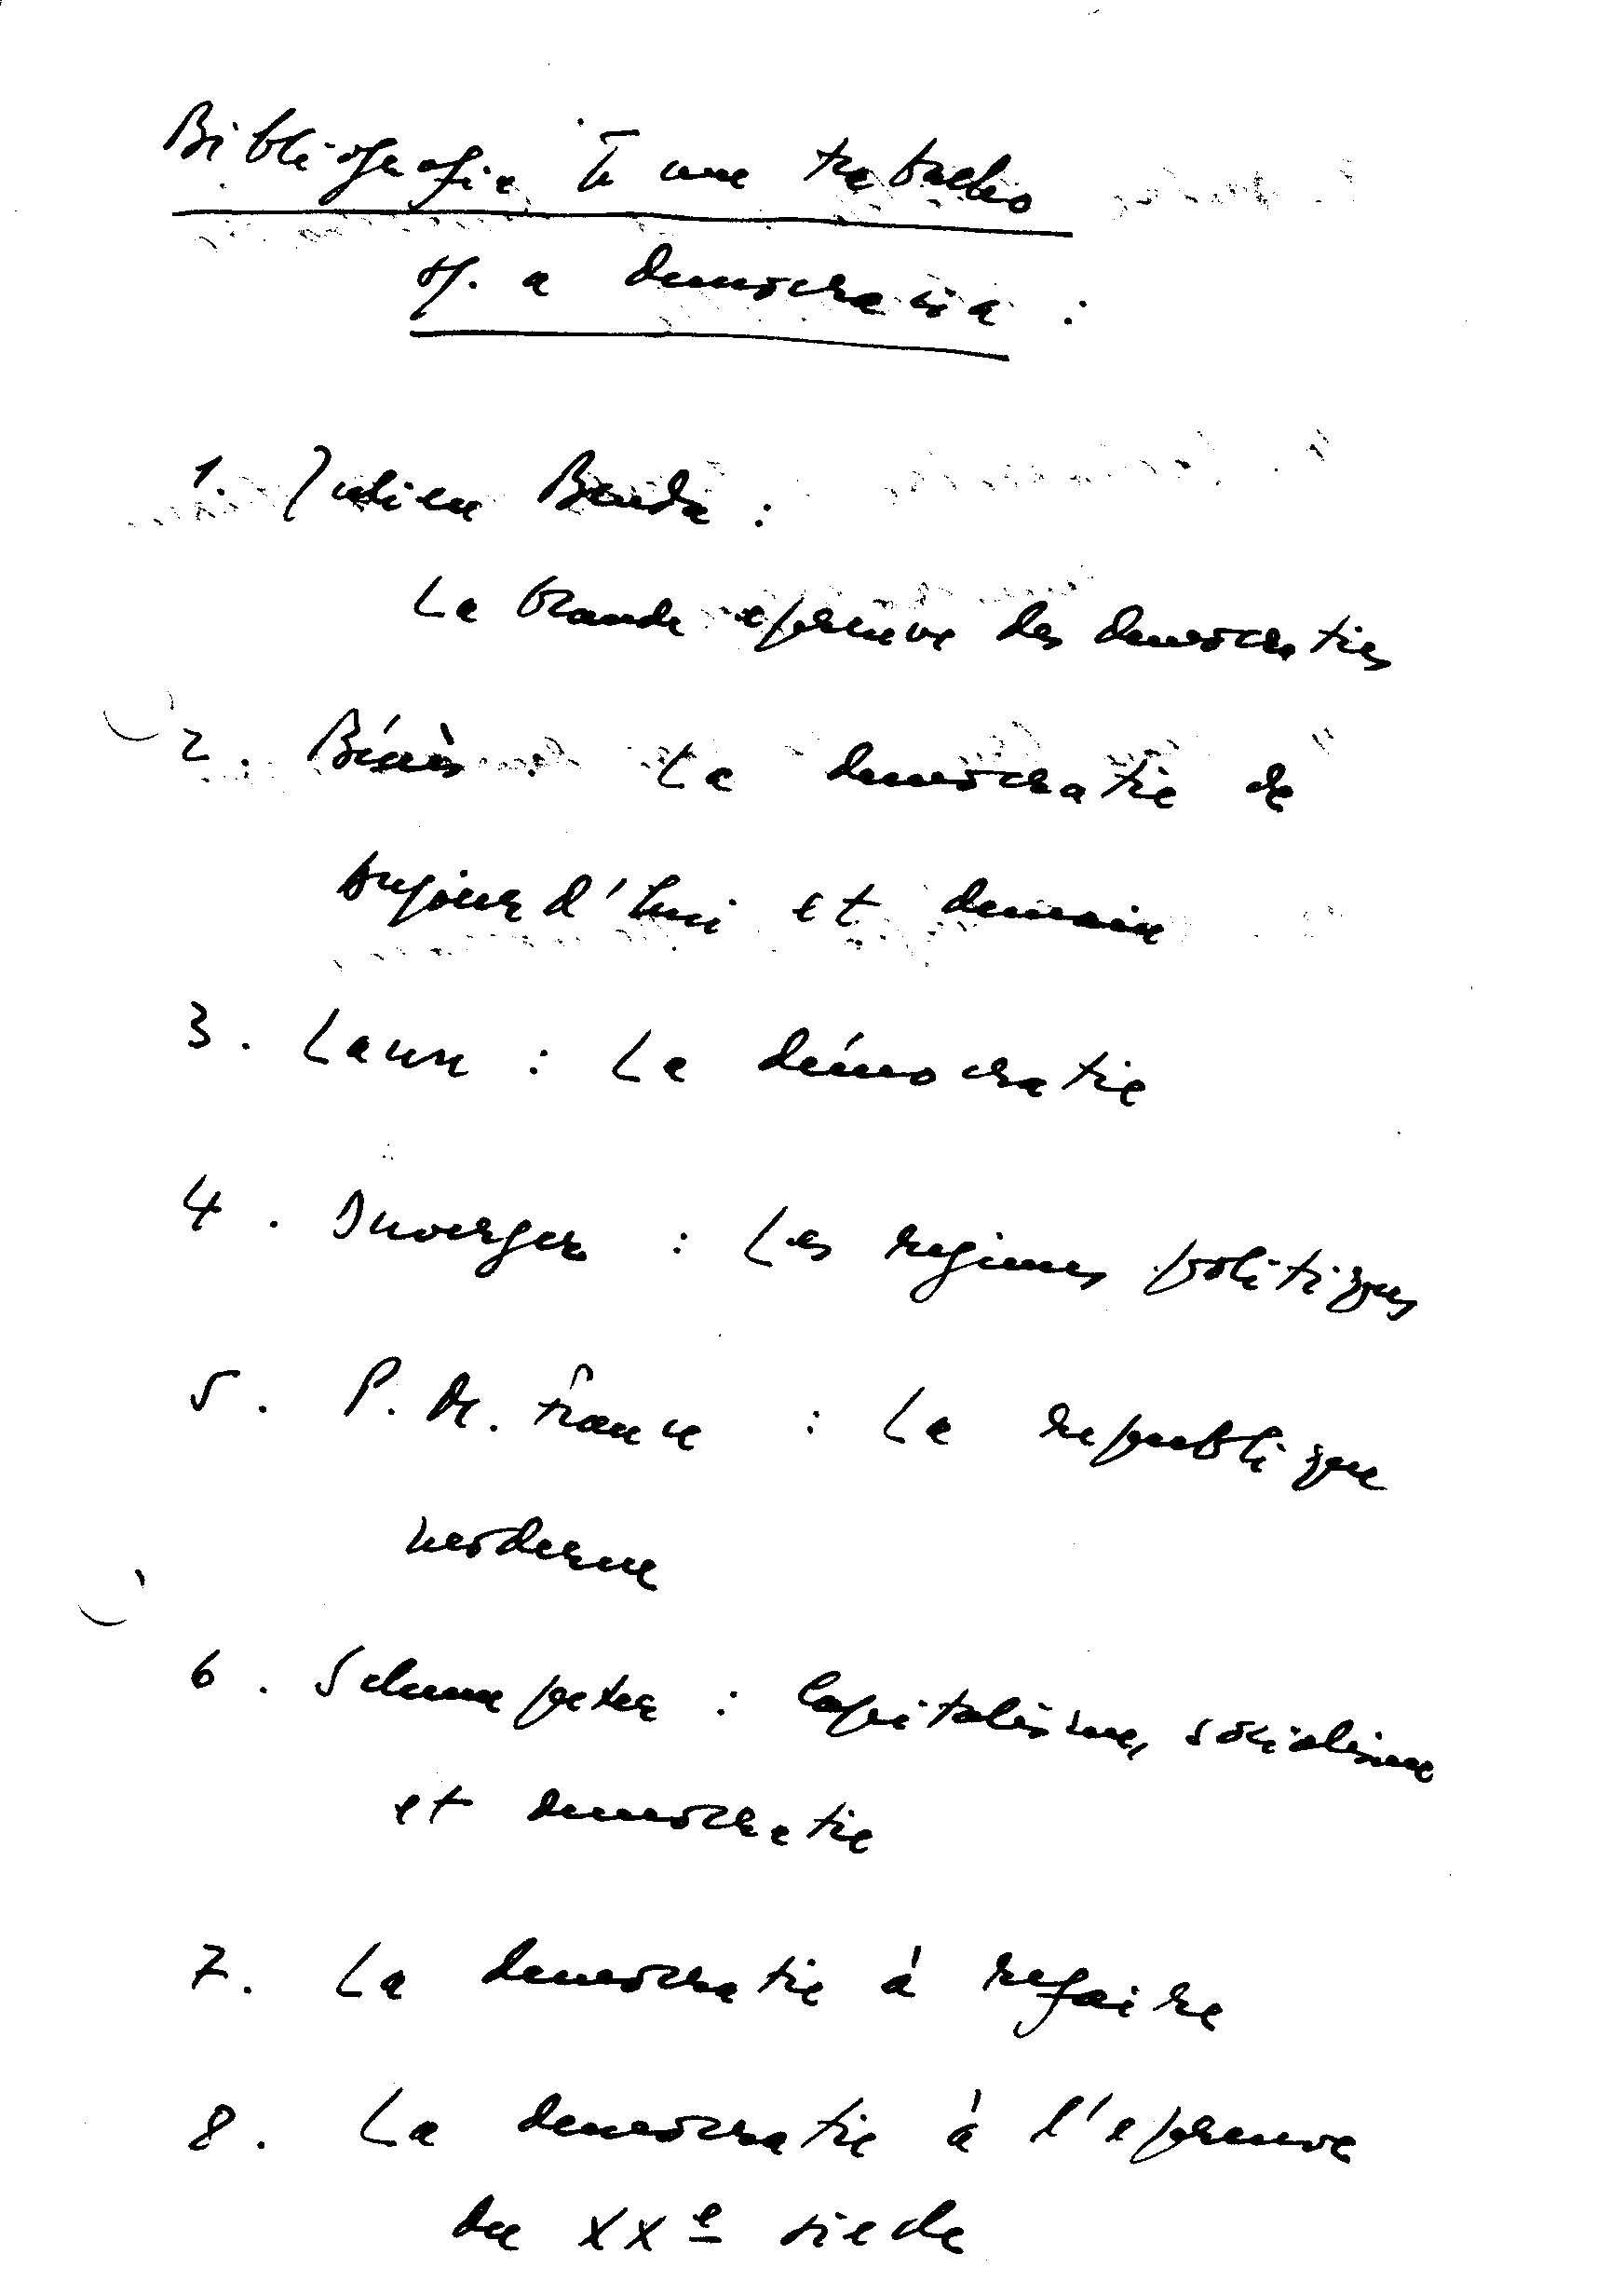 Bibliografia p. um trabalho
s/. a democracia :
1. Julien Benda :
La Grande epreuve des democraties
2. Bénès : La democratie de
aujourd'hui et demain
3. Laun : La démocratie
4. Duverger : Les regimes politiques
5. P. M. France : La republique
moderne
6. Schumpeter : Capitalisme, socialisme
et democratie
7. La democratie à refaire
8. La democratie à l'epreuve
du XXe siecle